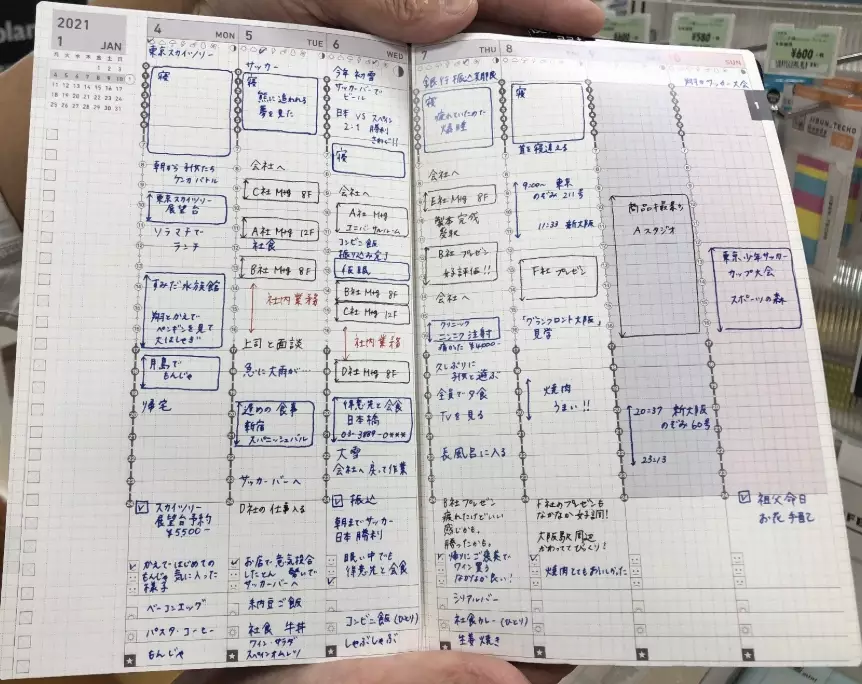 2021
1 JAN
月 火 水 木 金 土 日
1 2 3
4 5 6 7 8 9 10
11 12 13 14 15 16 17
18 19 20 21 22 23 24
25 26 27 28 29 30 31
4 MON
東京スカイツリー
寝
朝から 子供たち
ケンカバトル
東京スカイツリー
展望台
ソラマチで
ランチ
すみだ水族館
翔とかえで
ペンギンを見て
大はしゃぎ
月島で
もんじゃ
帰宅
スカイツリー
展望台予約
¥5500-
かえではじめての
もんじゃ 気に入った
様子
ベーコンエッグ
パスタ・コーヒー
もんじゃ
5 TUE
サッカー
寝
熊に追われる
夢を見た
会社へ
C社 Mtg 8F
A社 Mtg 12F
社食
B社 Mtg 8F
社内業務
上司と面談
急に大雨が…
遅めの食事
新宿
スパニッシュバル
サッカーバーへ
D社の仕事入る
お店で意気投合
サッカーバーへ
納豆ご飯
社食 牛丼
ワイン・サラダ
スペインオムレツ
6 WED
今年初雪
サッカーバーで
ビール
日本 VS スペイン
2-1 勝利
寝
会社へ
A社 Mtg
ユニバーサルルーム
コンビニ飯
振り込み完了
仮眠
B社 Mtg 8F
C社 Mtg 12F
社内業務
D社 Mtg 8F
得意先と会食
日本橋
03-3889-0***
大雪
会社へ戻って作業
振込
朝までサッカー
日本勝利
眠い中でも
得意先と会食
コンビニ飯(ひとり)
しゃぶしゃぶ
7 THU
銀行振込期限
寝
疲れていたので
爆睡
会社へ
E社 Mtg 8F
製本完成
受取
B社プレゼン
好評価!!
会社へ
クリニック
ニンニク注射
痛かった ¥4000-
久しぶりに
子供と遊ぶ
全員で夕食
TVを見る
長風呂に入る
B社プレゼン
疲れたけどいい
感じかも。
勝ったかも。
帰りにご褒美で
ワイン買う
なかなか良い!
シリアルバー
社食カレー(ひとり)
生姜焼き
8
寝
首を寝違える
9:00~ 東京
のぞみ 211号
11:33 新大阪
F社プレゼン
「グランフロント大阪」
見学
焼肉
うまい!!
F社のプレゼンも
なかなか好評!
大阪駅周辺
かわっててびっくり!
焼肉とてもおいしかった
Aスタジオ
20:37 新大阪
のぞみ 60号
23:13
SUN
翔のサッカー大会
1
東京少年サッカー
カップ大会
スポーツの森
祖父命日
お花手配
¥580
¥600